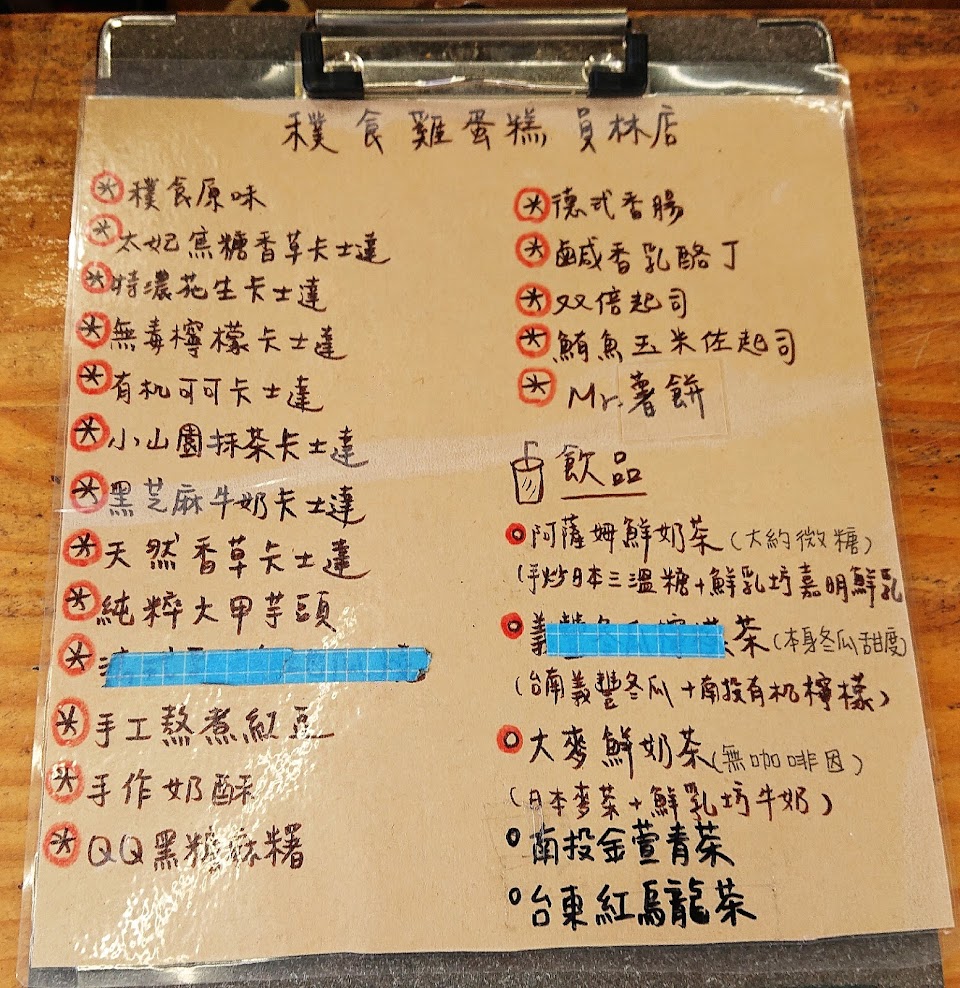 穙食雞蛋糕 員林店
穙食原味
太妃焦糖香草卡士達
特濃花生卡士達
無毒檸檬卡士達
有机可可卡士達
小山園抹茶卡士達
黑芝麻牛奶卡士達
天然香草卡士達
純粹大甲芋頭
手工熬煮紅豆
手作奶酥
QQ黑糖麻糬
德式香腸
鹹香乳酪丁
双倍起司
鮪魚玉米佐起司
Mr.薯餅
飲品
阿薩姆鮮奶茶(大約微糖)
(手炒日本三溫糖+鮮乳坊嘉明鮮乳
義豐茶(本身冬瓜甜度)
(台南義豐冬瓜+南投有机檸檬)
大麥鮮奶茶(無咖啡因)
(日本麥茶+鮮乳坊牛奶)
南投金萱青茶
台東紅烏龍茶